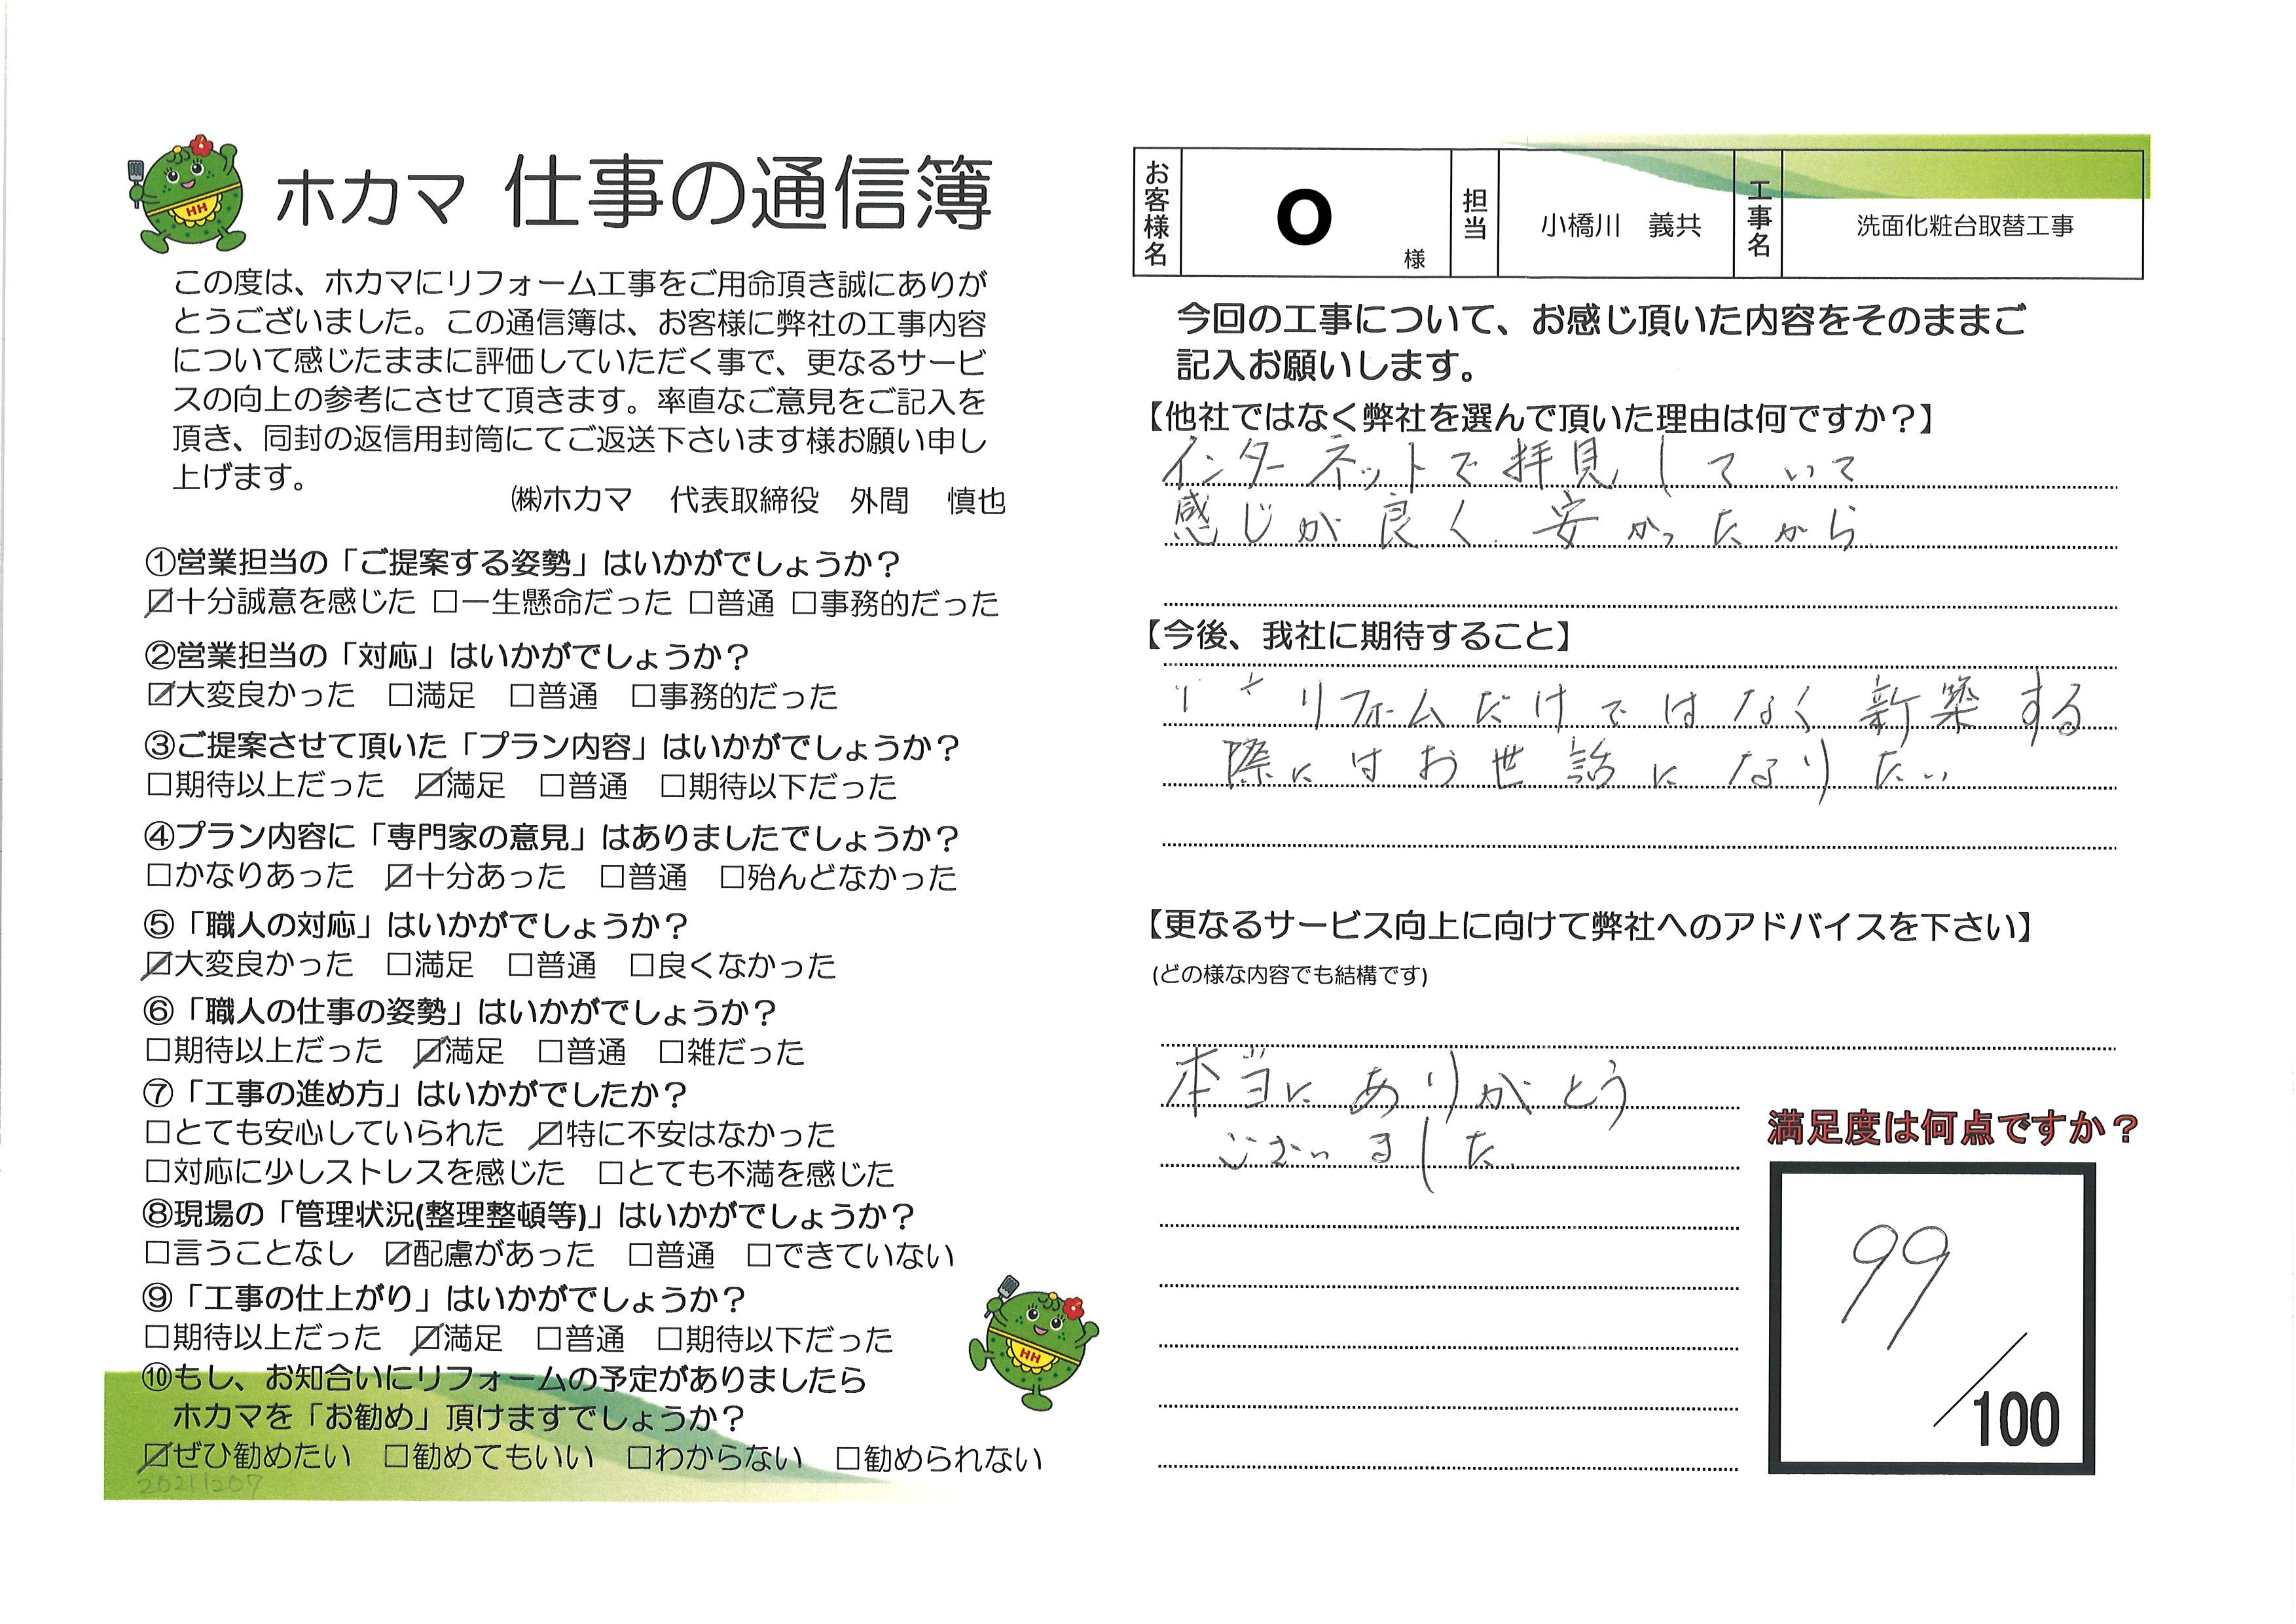 ホカマ 仕事の通信簿
この度は、ホカマにリフォーム工事をご用命頂き誠にありが
とうございました。この通信簿は、お客様に弊社の工事内容
について感じたままに評価していただく事で、更なるサービ
スの向上の参考にさせて頂きます。率直なご意見をご記入を
頂き、同封の返信用封筒にてご返送下さいます様お願い申し
上げます。
㈱ホカマ 代表取締役 外間 慎也
①営業担当の「ご提案する姿勢」はいかがでしょうか？
☑十分誠意を感じた □一生懸命だった □普通 □事務的だった
②営業担当の「対応」はいかがでしょうか？
☑大変良かった □満足 □普通 □事務的だった
③ご提案させて頂いた「プラン内容」はいかがでしょうか？
□期待以上だった ☑満足 □普通 □期待以下だった
④プラン内容に「専門家の意見」はありましたでしょうか？
□かなりあった ☑十分あった □普通 □殆んどなかった
⑤「職人の対応」はいかがでしょうか？
☑大変良かった □満足 □普通 □良くなかった
⑥「職人の仕事の姿勢」はいかがでしょうか？
□期待以上だった ☑満足 □普通 □雑だった
⑦「工事の進め方」はいかがでしたか？
□とても安心していられた ☑特に不安はなかった
□対応に少しストレスを感じた □とても不満を感じた
⑧現場の「管理状況(整理整頓等)」はいかがでしょうか？
□言うことなし ☑配慮があった □普通 □できていない
⑨「工事の仕上がり」はいかがでしょうか？
□期待以上だった ☑満足 □普通 □期待以下だった
⑩もし、お知合いにリフォームの予定がありましたら
ホカマを「お勧め」頂けますでしょうか？
☑ぜひ勧めたい □勧めてもいい □わからない □勧められない
20211207
お客様名 O 様 担当 小橋川 義共 工事名 洗面化粧台取替工事
今回の工事について、お感じ頂いた内容をそのままご
記入お願いします。
【他社ではなく弊社を選んで頂いた理由は何ですか？】
インターネットで拝見していて
感じが良く、安かったから
【今後、我社に期待すること】
リフォームだけではなく新築する
際にはお世話になりたい
【更なるサービス向上に向けて弊社へのアドバイスを下さい】
(どの様な内容でも結構です)
本当にありがとう
ございました
満足度は何点ですか？
99
/100
HH
HH